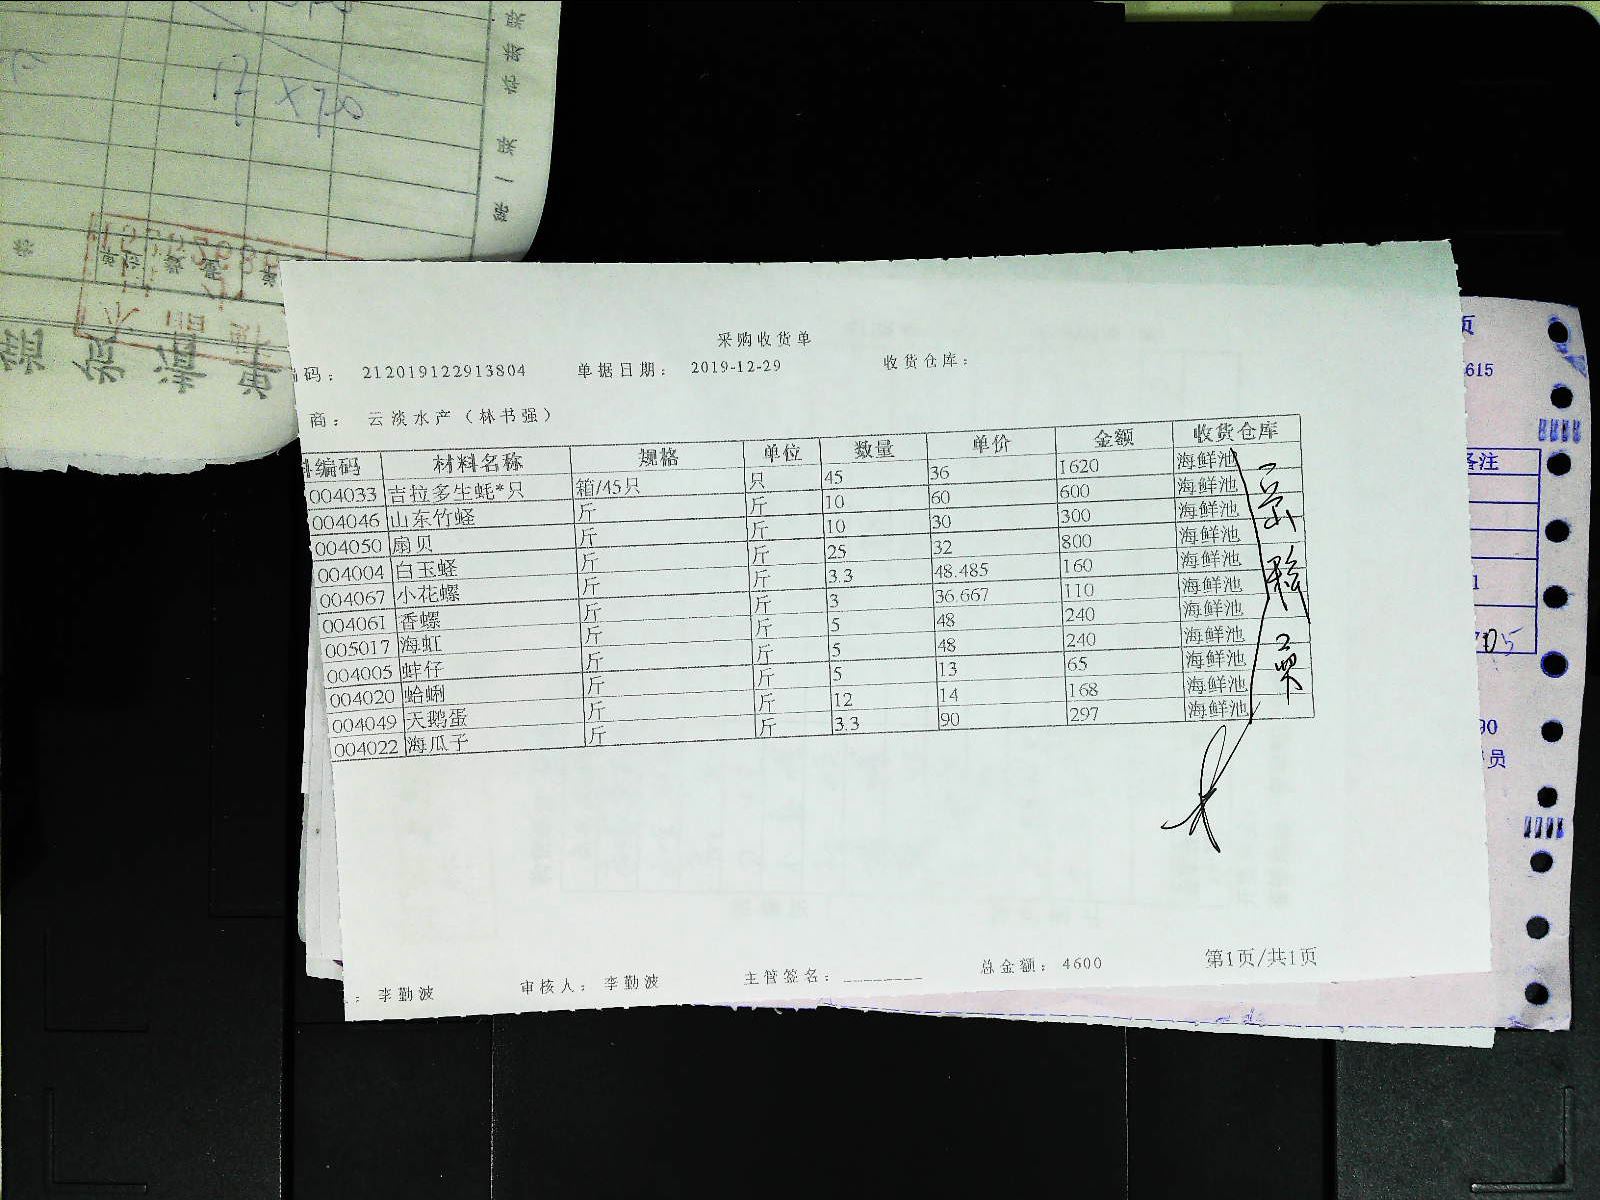 17×70
第一联
采购收货单
编码： 212019122913804 单据日期： 2019-12-29 收货仓库：
商： 云淡水产（林书强）
料编码 材料名称 规格 单位 数量 单价 金额 收货仓库
004033 吉拉多生蚝*只 箱/45只 只 45 36 1620 海鲜池
004046 山东竹蛏 斤 斤 10 60 600 海鲜池
004050 扇贝 斤 斤 10 30 300 海鲜池
004004 白玉蛏 斤 斤 25 32 800 海鲜池
004067 小花螺 斤 斤 3.3 48.485 160 海鲜池
004061 香螺 斤 斤 3 36.667 110 海鲜池
005017 海虹 斤 斤 5 48 240 海鲜池
004005 蛏仔 斤 斤 5 48 240 海鲜池
004020 蛤蜊 斤 斤 5 13 65 海鲜池
004049 天鹅蛋 斤 斤 12 14 168 海鲜池
004022 海瓜子 斤 斤 3.3 90 297 海鲜池
： 李勤波 审核人： 李勤波 主管签名： 总金额： 4600 第1页/共1页
页
615
备注
1
05
90
员